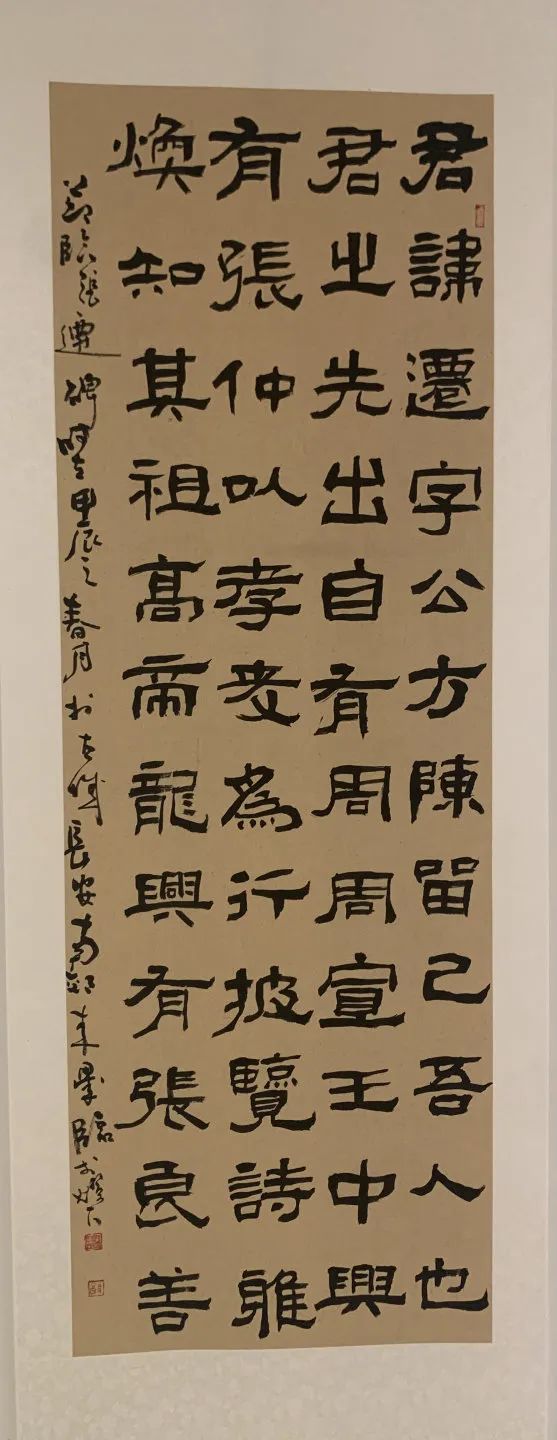 君諱遷字公方陳留己吾人也
君之先出自有周周宣王中興
有張仲以孝友為行披覽詩雅
煥知其祖高帝龍興有張良善
節臨張遷碑時在甲辰之春月於古城長安南郊 臨於燈下